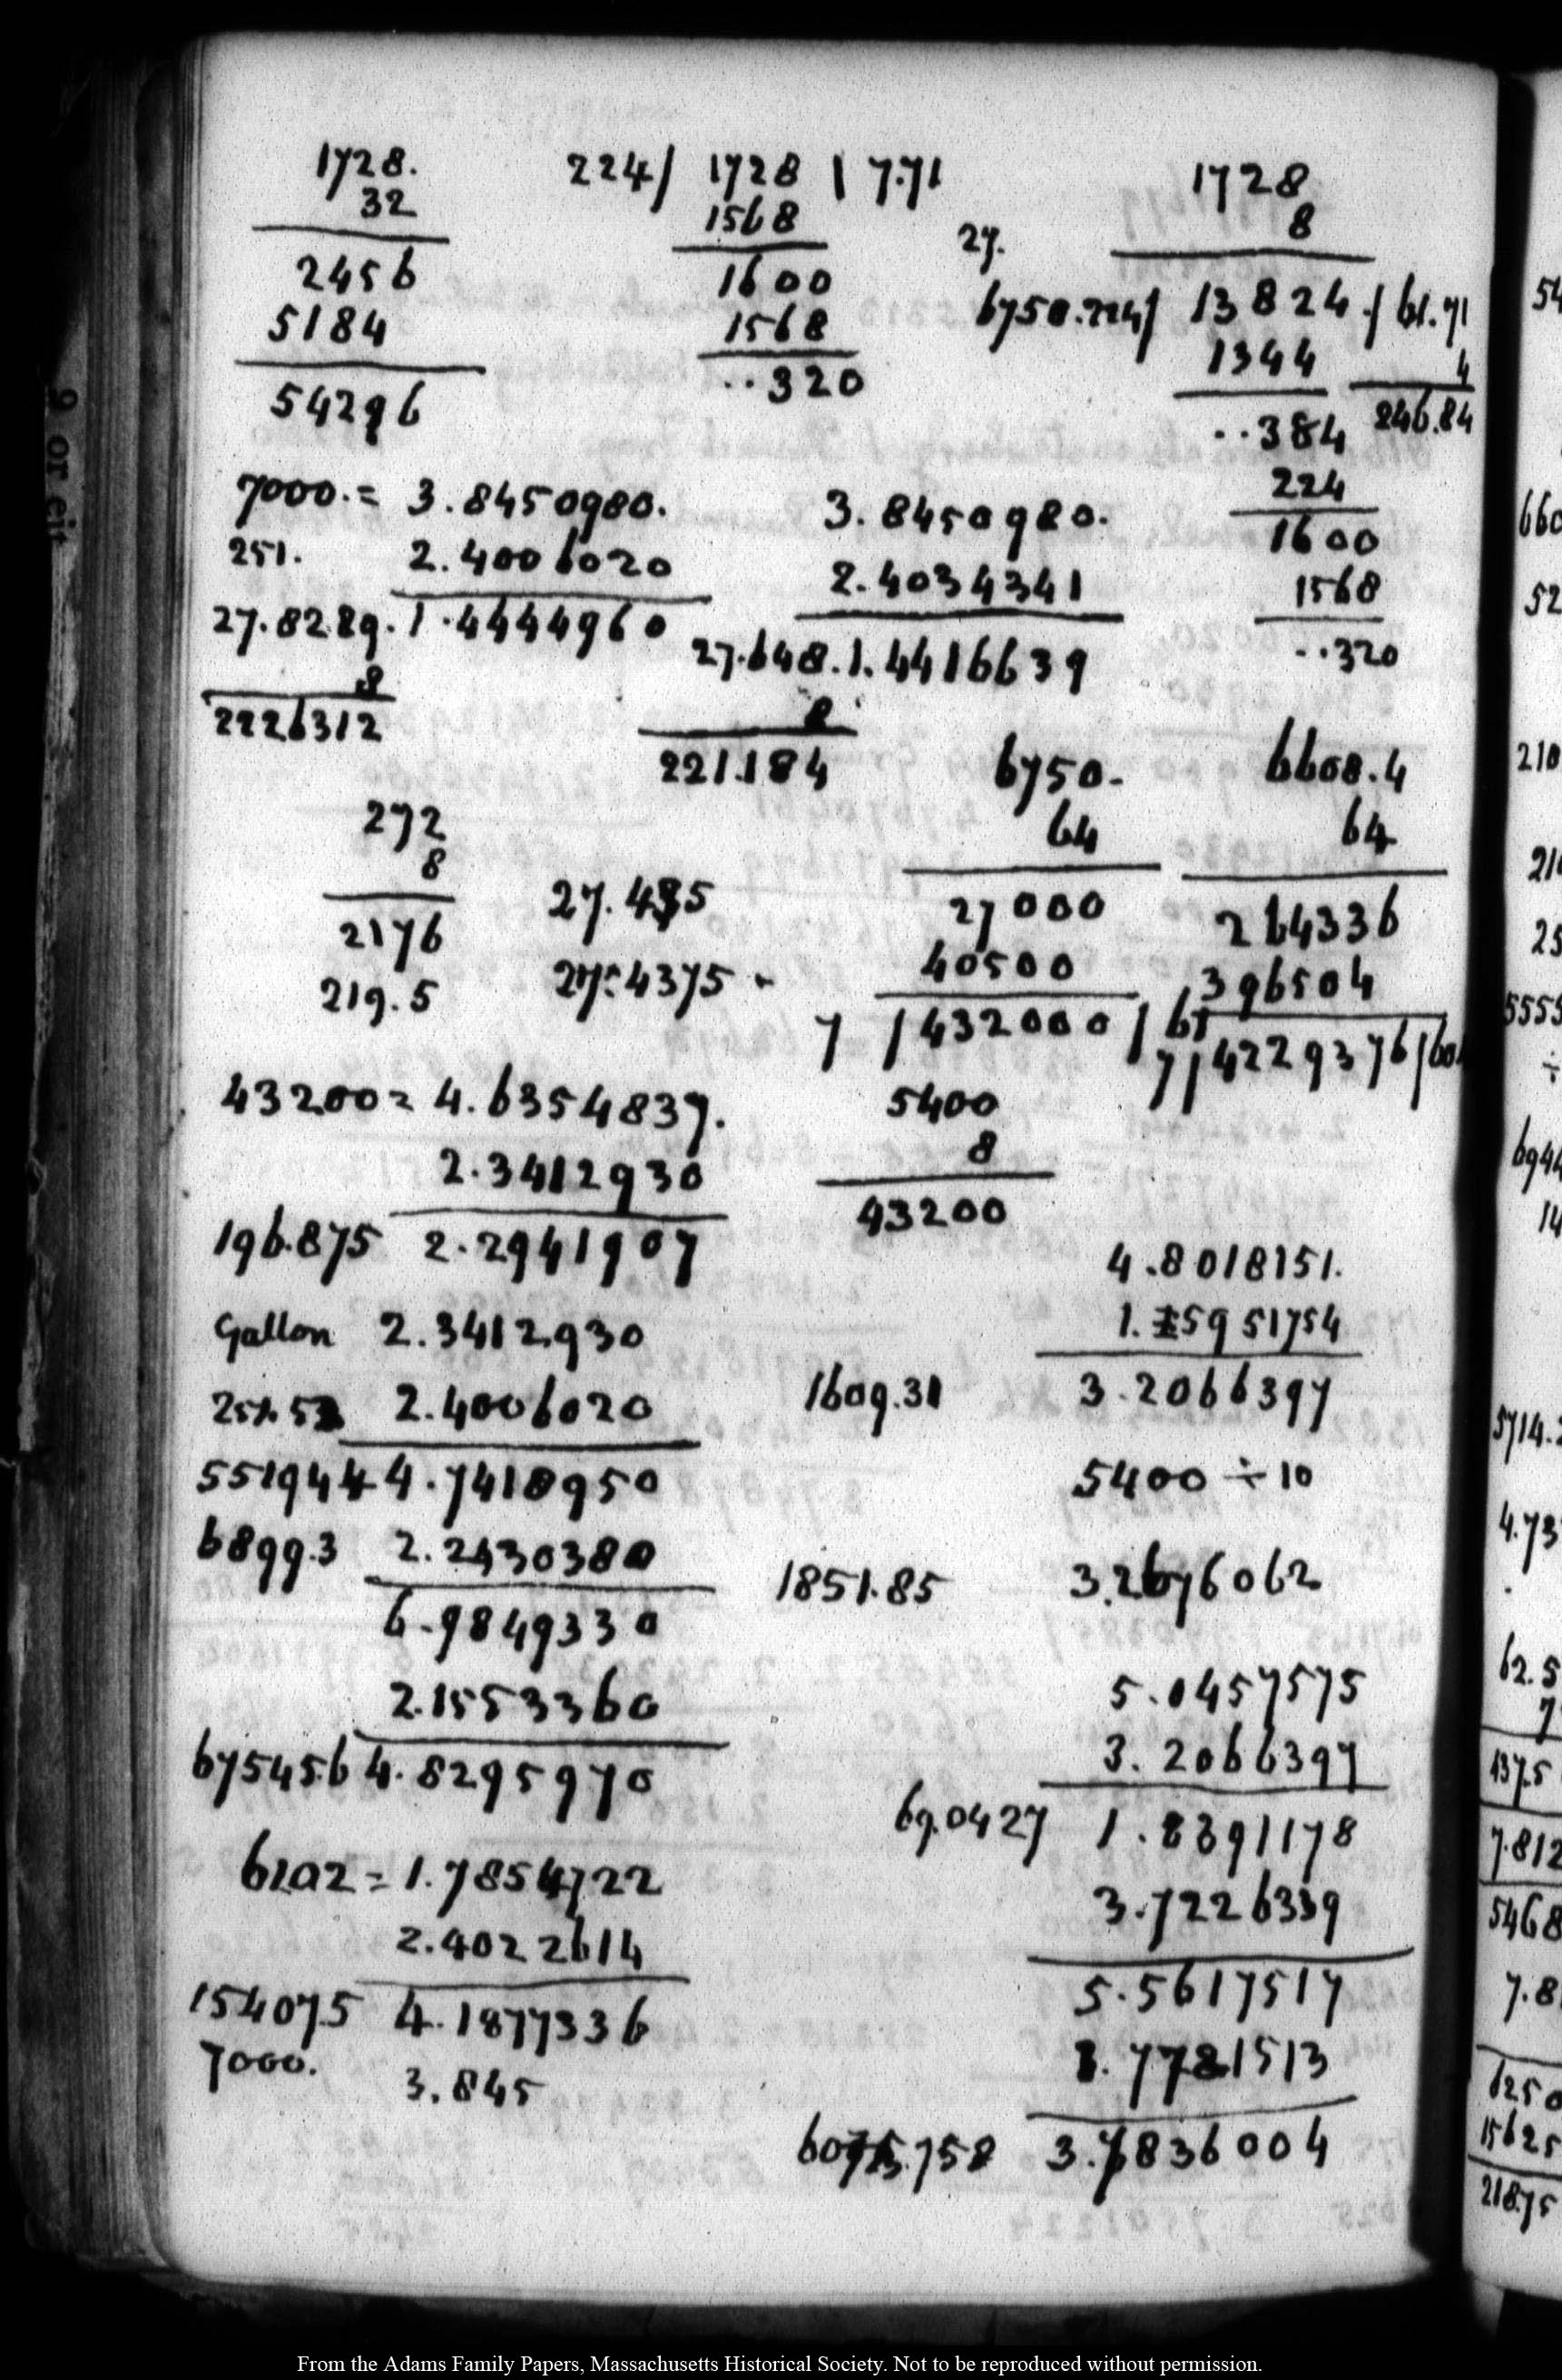 1728.
32
2456
5184
54296
224 / 1728 | 7.71
1568
1600
1568
..320
1728
8
27.
6750.224/ 13824./ 61.71
4
246.84
1344
..384
224
1600
1568
..320
7000.= 3.8450980.
251. 2.4006020
27.8289. 1.4444960
8
2226312
3.8450980.
2.4034341
27.648. 1.4416639
8
221.184
272
8
2176
219.5
27.435
27.4375
6750.
64
27000
40500
7 / 432000 / 61
5400
8
43200
6608.4
64
264336
396504
7/ 4229376 /60
43200 = 4.6354837.
2.3412930
196.875 2.2941907
Gallon 2.3412930
2.4006020
551944 4.7418950
6899.3 2.2430380
6.9849330
2.1553360
67545.6 4.8295970
61.02 = 1.7854722
2.4022614
15407.5 4.1877336
7000. 3.845
4.8018151.
1.5951754
1609.31 3.2066397
5400 ÷ 10
1851.85 3.2676062
5.0457575
3.2066397
69.0427 1.8391178
3.7226339
5.5617517
3.7781513
3.7836004
9 or eir
54
660
52
210
21
25
5555
÷
694
14
5714.2
4.73
62.5
7
437.5
7.812
5468
7.8
6250
15625
218.75
From the Adams Family Papers, Massachusetts Historical Society. Not to be reproduced without permission.